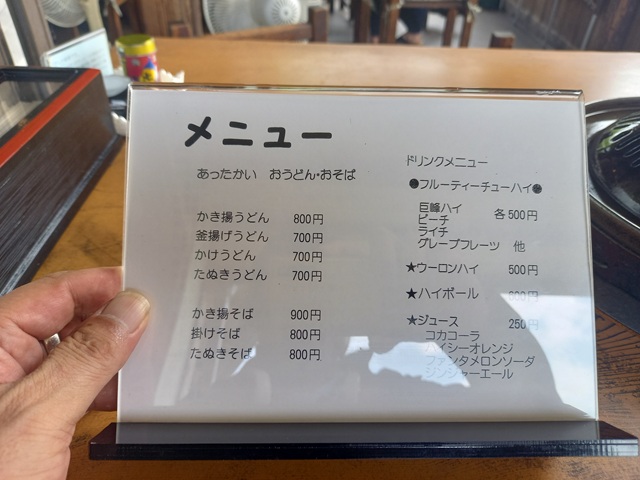 メニュー
あったかい おうどん・おそば
かき揚うどん 800円
釜揚げうどん 700円
かけうどん 700円
たぬきうどん 700円
かき揚そば 900円
掛けそば 800円
たぬきそば 800円
ドリンクメニュー
●フルーティーチューハイ●
巨峰ハイ
ピーチ 各500円
ライチ
グレープフルーツ 他
★ウーロンハイ 500円
★ハイボール
★ジュース 250円
コカコーラ
ハイシーオレンジ
ファンタメロンソーダ
ジンジャーエール